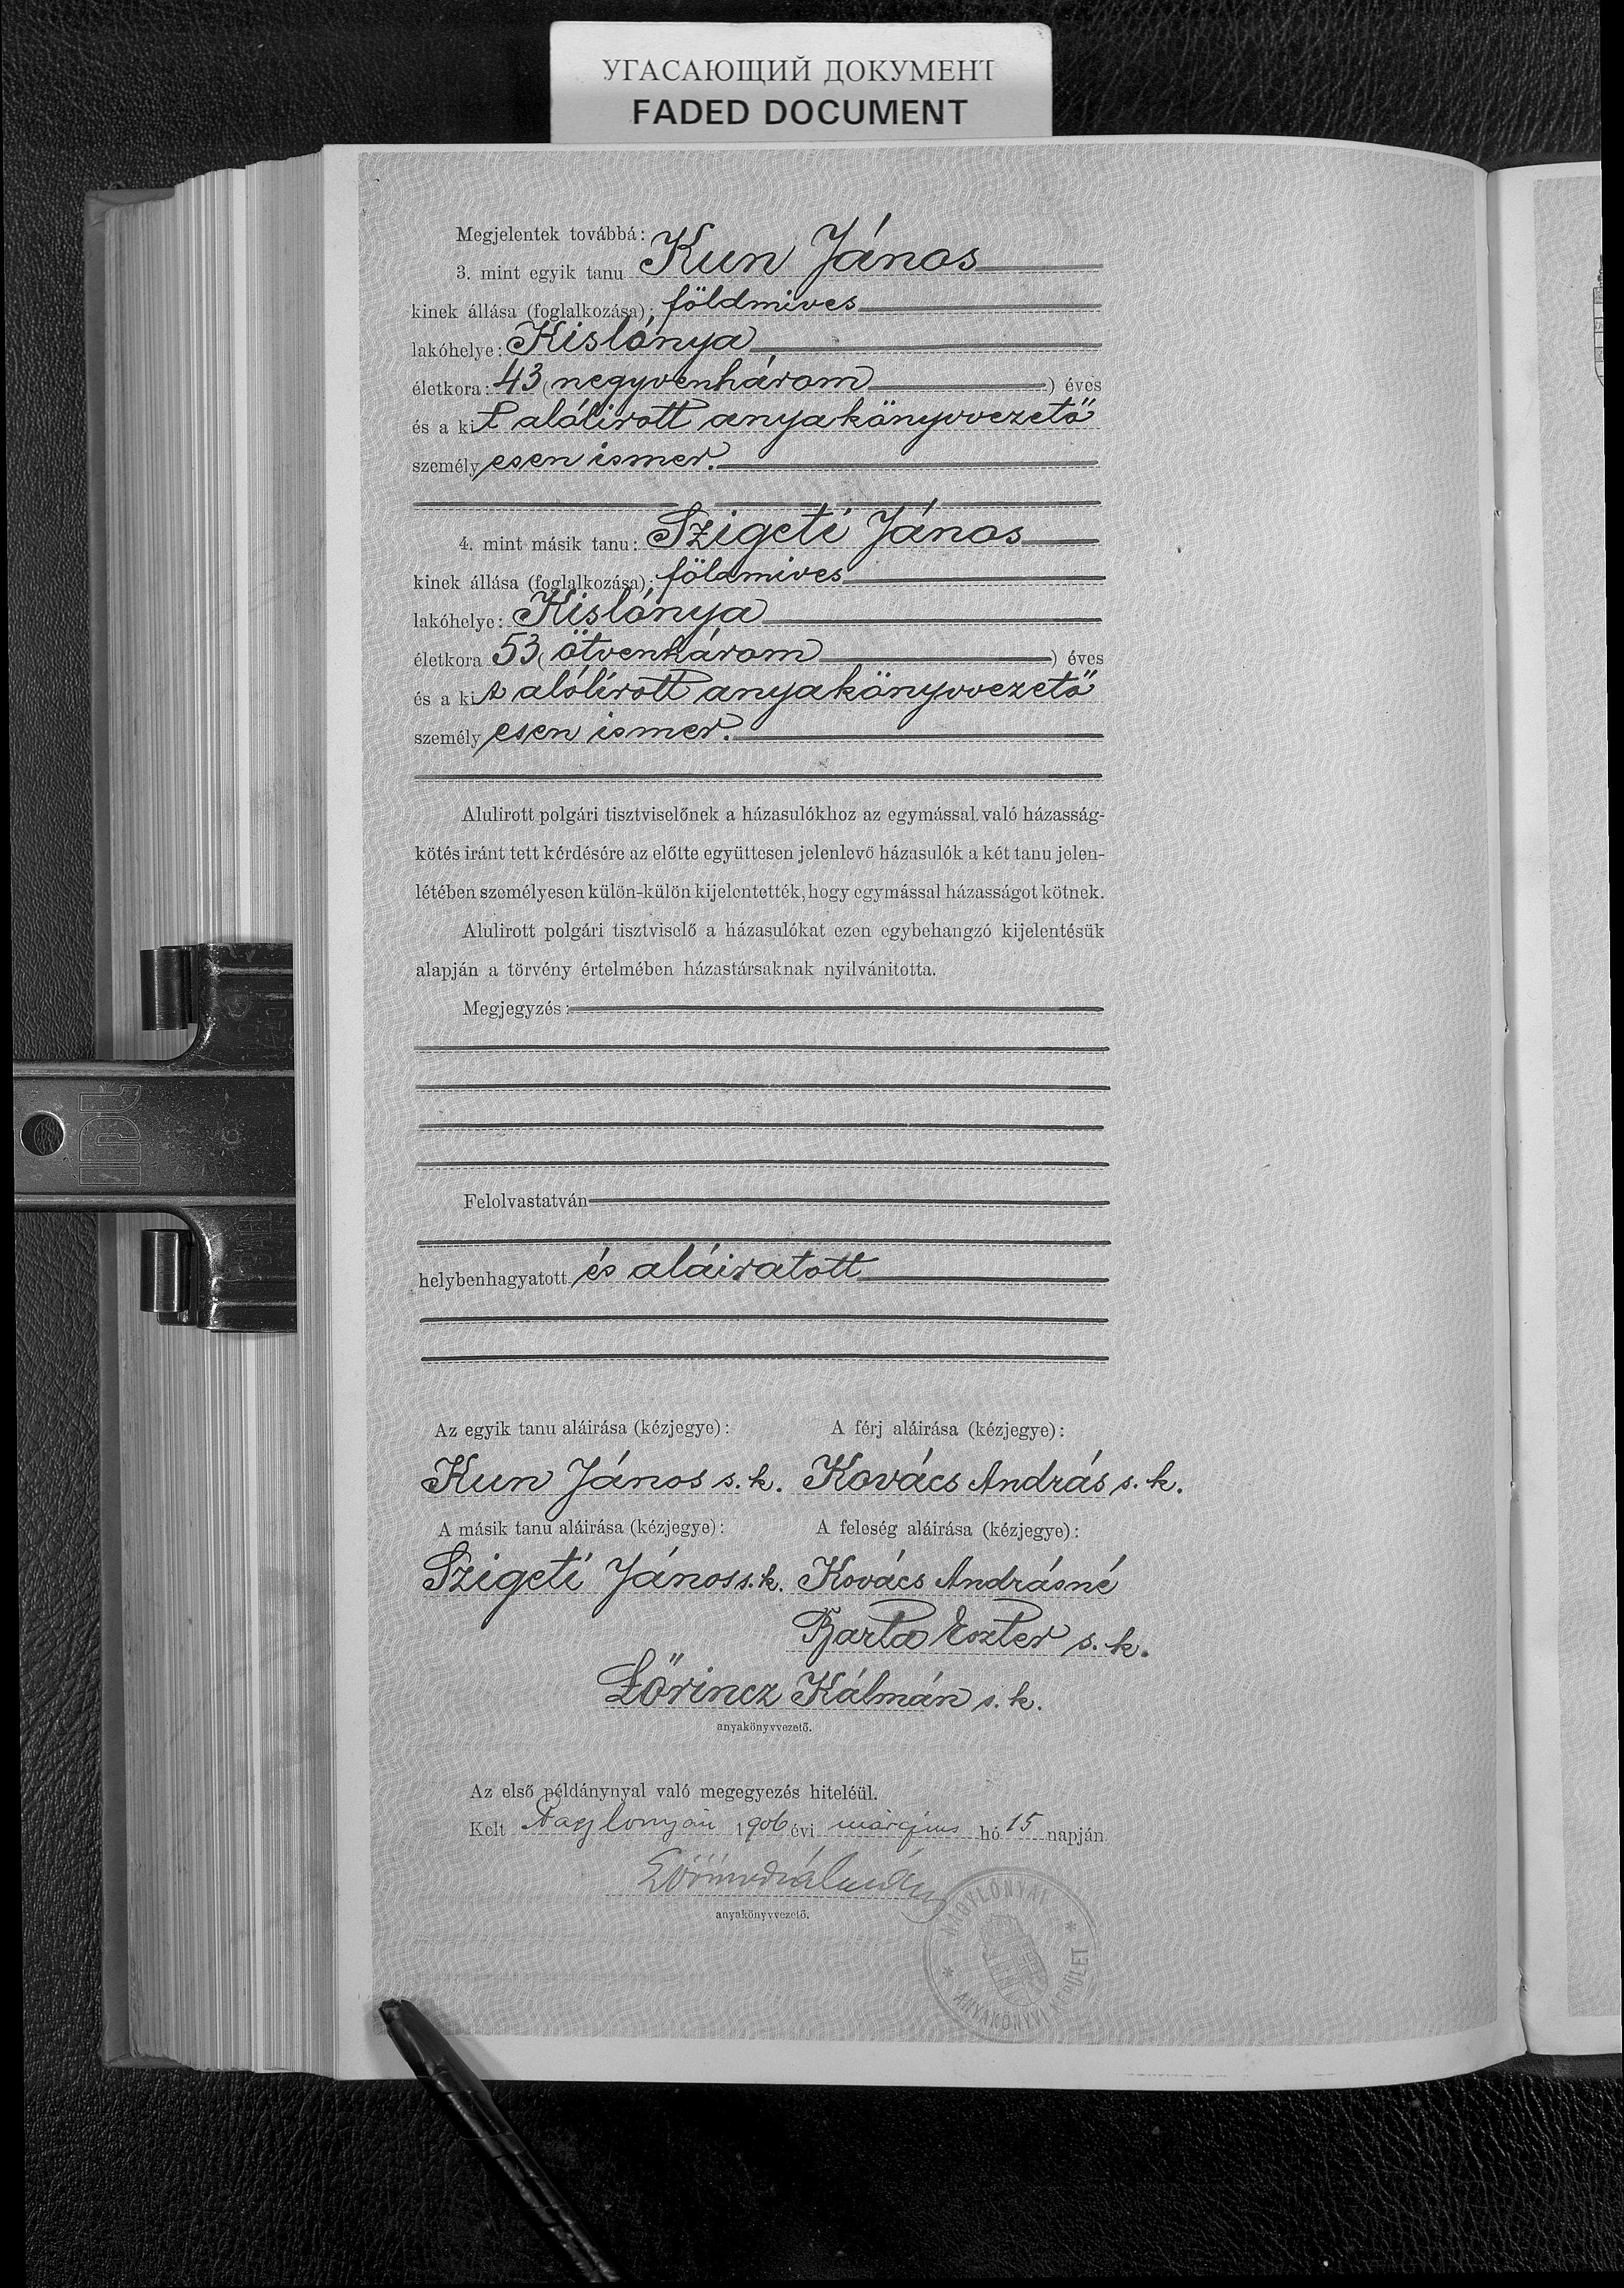 УГАСАЮЩИЙ ДОКУМЕНТ
FADED DOCUMENT
Megjelentek továbbá:
3. mint egyik tanu Kun János
kinek állása (foglalkozása): földmives
lakóhelye: Kislónya
életkora: 43 (negyvenhárom) éves
és a kit alólirott anyakönyvvezető
személyesen ismer.
4. mint másik tanu: Szigeti János
kinek állása (foglalkozása): földmives
lakóhelye: Kislónya
életkora 53 (ötvenhárom) éves
és a kit alólirott anyakönyvvezető
személyesen ismer.
Alulirott polgári tisztviselőnek a házasulókhoz az egymással való házasság-
kötés iránt tett kérdésére az előtte együttesen jelenlevő házasulók a két tanu jelen-
létében személyesen külön-külön kijelentették, hogy egymással házasságot kötnek.
Alulirott polgári tisztviselő a házasulókat ezen egybehangzó kijelentésük
alapján a törvény értelmében házastársaknak nyilvánitotta.
Megjegyzés:
Felolvastatván
helybenhagyatott és aláiratott
Az egyik tanu aláirása (kézjegye): A férj aláirása (kézjegye):
Kun János s. k. Kovács András s. k.
A másik tanu aláirása (kézjegye): A feleség aláirása (kézjegye):
Szigeti János s. k. Kovács Andrásné
Barta Eszter s. k.
Lőrincz Kálmán s. k.
anyakönyvvezető.
Az első példánynyal való megegyezés hiteléül.
Kelt Nagylonyán 1906 évi március hó 15 napján
Lőrincz Kálmán
anyakönyvvezető.
NAGYLÓNYAI
* ANYAKÖNYVI KERÜLET *